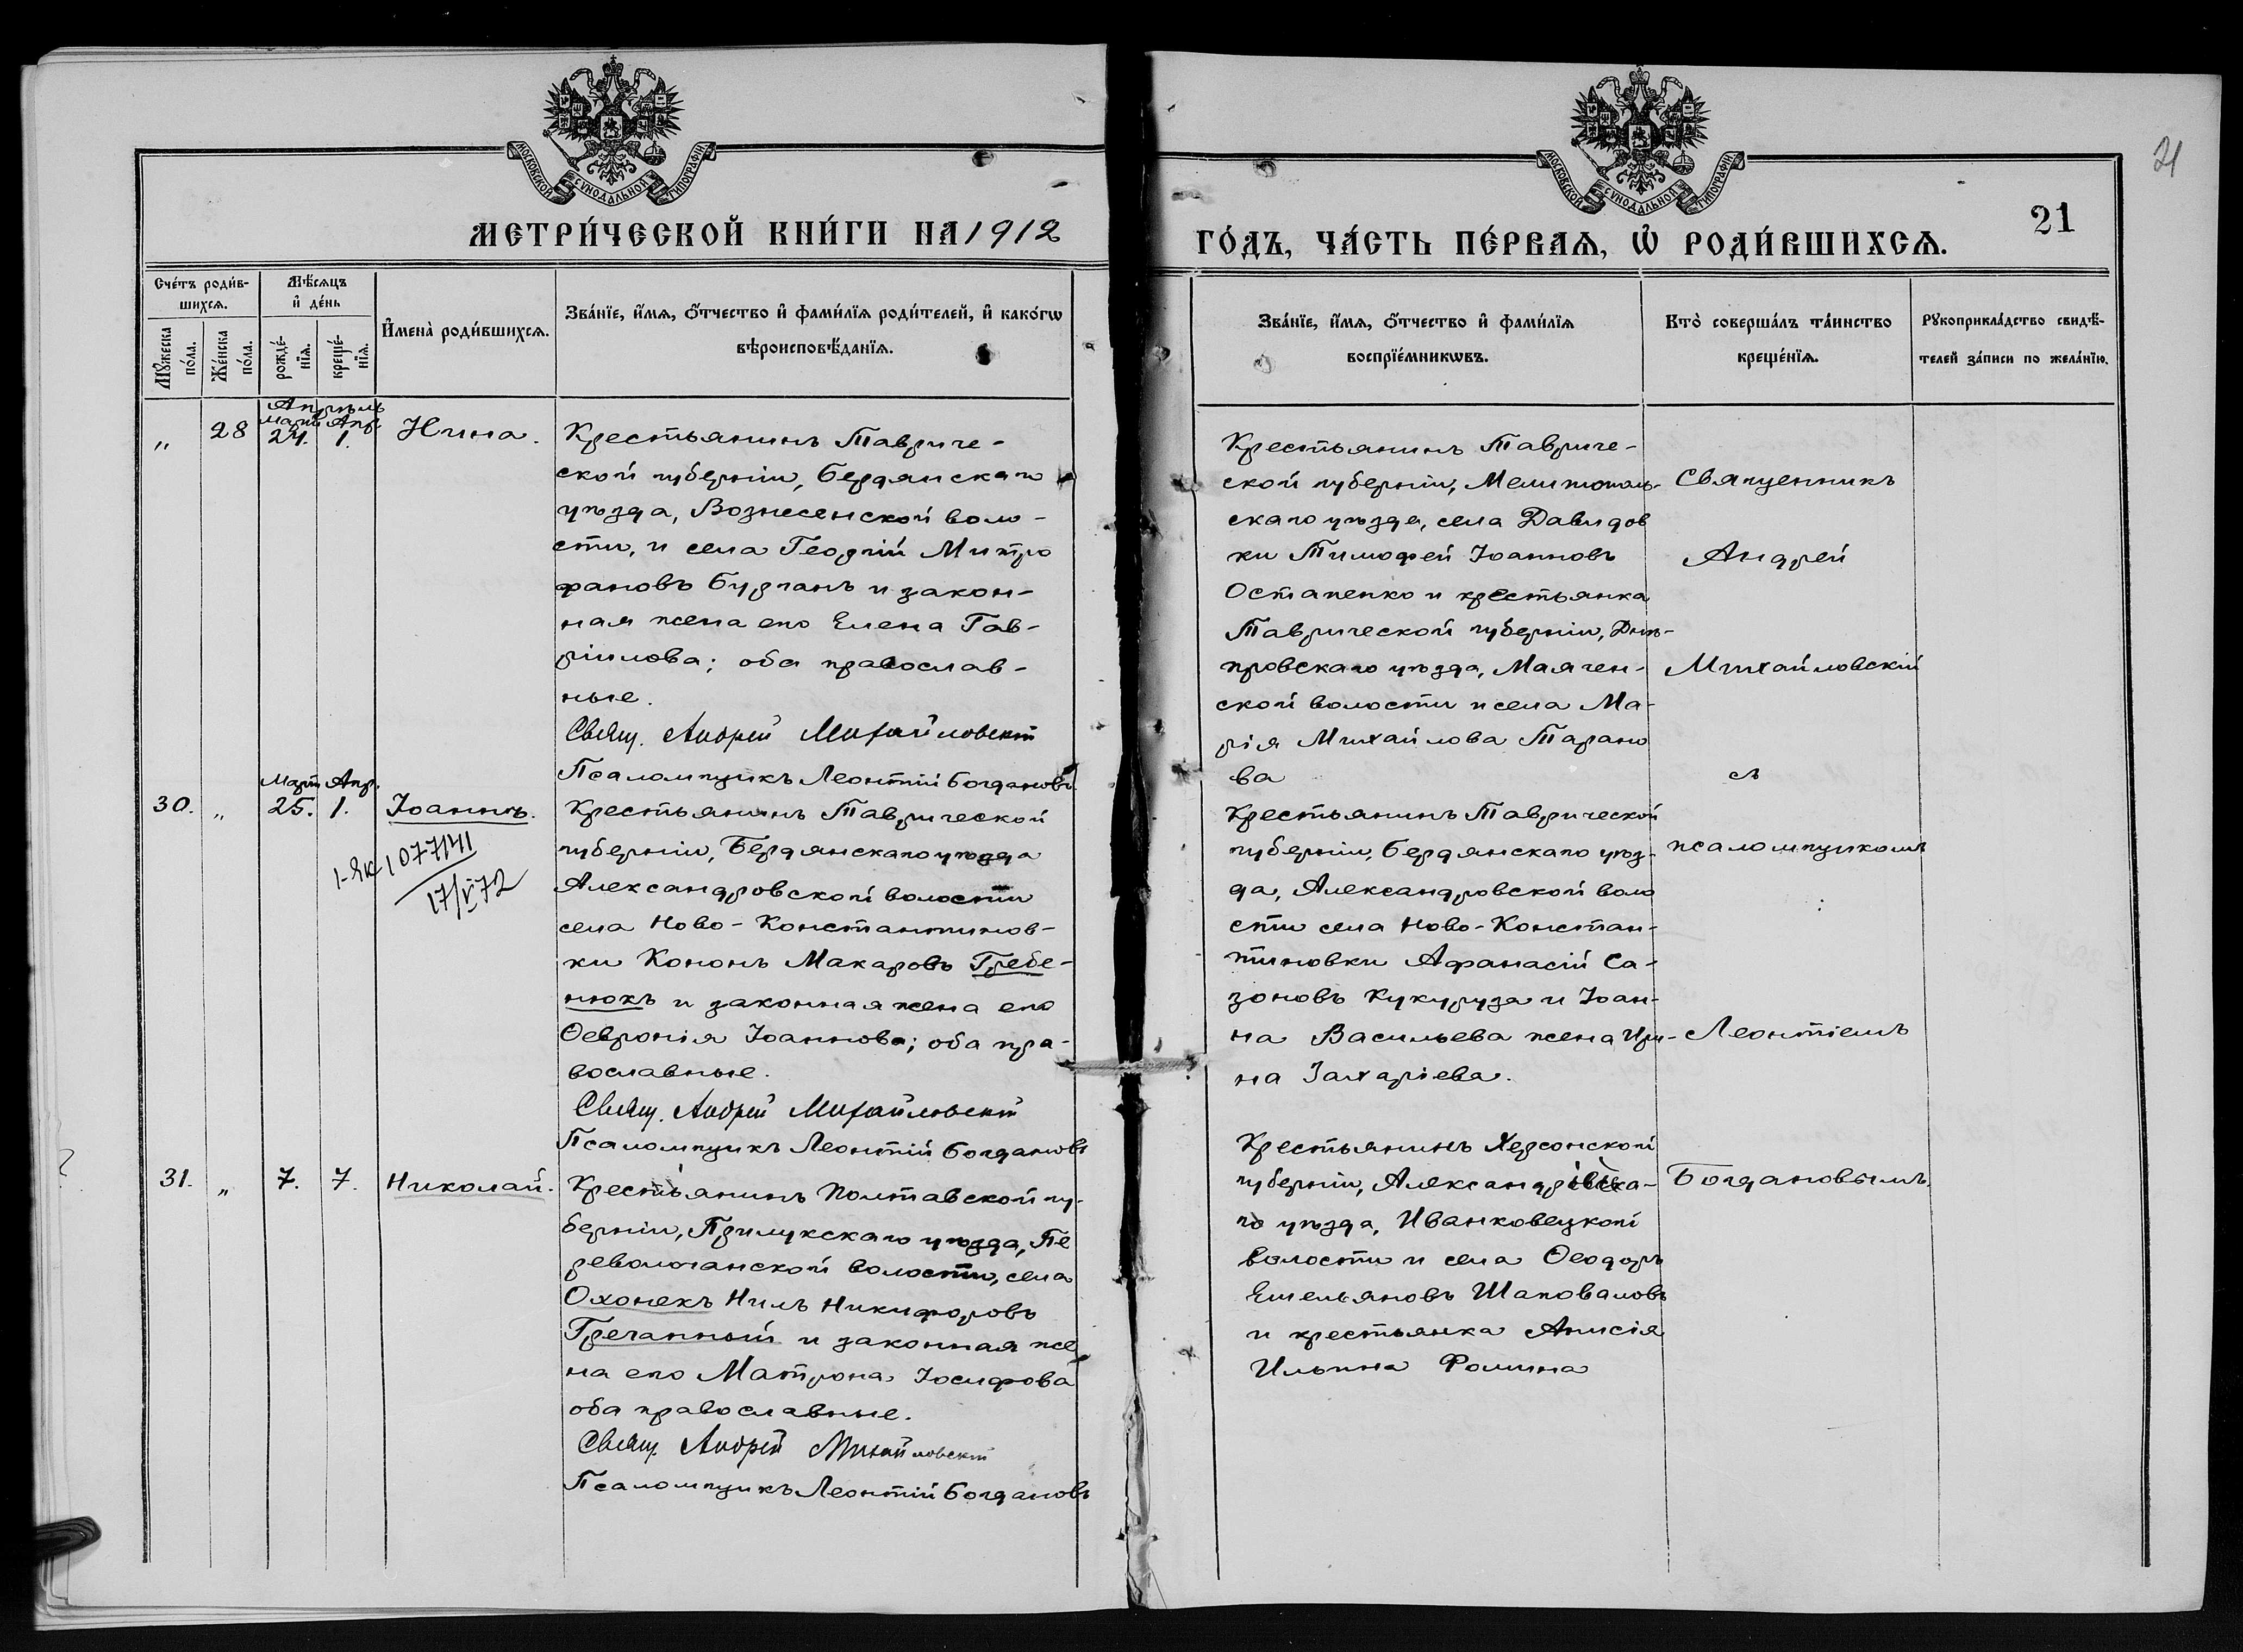 МОСКОВСКОЙ СѴНОДАЛЬНОЙ ТИПОГРАФІИ
МЕТРИ́ЧЕСКОЙ КНИ́ГИ НА 1912
Сче́тъ роди́в-
шихсѧ.
Мѣ́сѧцъ
и҆ де́нь
Мꙋ́жеска
по́ла.
Же́нска
по́ла.
рожде́-
нїѧ.
креще́-
нїѧ.
И҆мена̀ роди́вшихсѧ.
Зва́нїе, и҆́мѧ, ѻ҆́тчество и҆ фами́лїѧ роди́телей, и҆ како́гѡ
вѣроисповѣ́данїѧ.
Апрѣль
Мартъ Апр.
„ 28 24. 1. Нина.
Крестьянинъ Тавриче-
ской губерніи, Бердянскаго
уѣзда, Вознесенской воло-
сти, и села Георгій Митро
фановъ Бурганъ и закон-
ная жена его Елена Гав-
ріилова; оба православ-
ные.
Свящ. Андрей Михайловскій
Псаломщикъ Леонтій Богдановъ
Март Апр.
30. „ 25. 1. Іоаннъ.
1-як 1077141
17/V 72
Крестьянинъ Таврической
губерніи, Бердянскаго уѣзда
Александровской волости
села Ново-Константинов-
ки Кононъ Макаровъ Гребе-
нюкъ и законная жена его
Ѳевронія Іоаннова; оба пра-
вославные.
Свящ. Андрей Михайловскій
Псаломщикъ Леонтій Богдановъ
31. „ 7. 7. Николай.
Крестьянинъ Полтавской гу-
берніи, Прилукскаго уѣзда, Пе
револочанской волости, села
Охонекъ Нилъ Никифоровъ
Гречанный и законная же
на его Матрона Іосифова
оба православные.
Свящ. Андрей Михайловскій
Псаломщикъ Леонтій Богдановъ
МОСКОВСКОЙ СѴНОДАЛЬНОЙ ТИПОГРАФІИ
21
21
ГО́ДЪ, ЧА́СТЬ ПЕ́РВАѦ, Ѡ҆ РОДИ́ВШИХСѦ.
Зва́нїе, и҆́мѧ, ѻ҆́тчество и҆ фами́лїѧ
воспрїе́мникѡвъ.
Кто̀ соверша́лъ та́инство
креще́нїѧ.
Рꙋкоприкла́дство свидѣ́-
телей за́писи по жела́нїю.
Крестьянинъ Тавриче-
ской губерніи, Мелитополь-
скаго уѣзда, села Давидов
ки Тимофей Іоанновъ
Остапенко и крестьянка
Таврической губерніи, Днѣ-
провскаго уѣзда, Маячен-
ской волости и села Ма-
рія Михайлова Тарано
ва
Крестьянинъ Таврической
губерніи, Бердянскаго уѣз-
да, Александровской воло
сти села Ново-Констан-
тиновки Афанасій Са-
зоновъ Кукуруза и Іоан-
на Васильева жена Ири-
на Захаріева.
Крестьянинъ Херсонской
губерніи, Александрійска-
го уѣзда, Иванковецкой
волости и села Ѳеодоръ
Емельяновъ Шаповаловъ
и крестьянка Анисія
Ильина Фомина
Священникъ
Андрей
Михайловскій
съ
псаломщикомъ
Леонтіемъ
Богдановымъ.